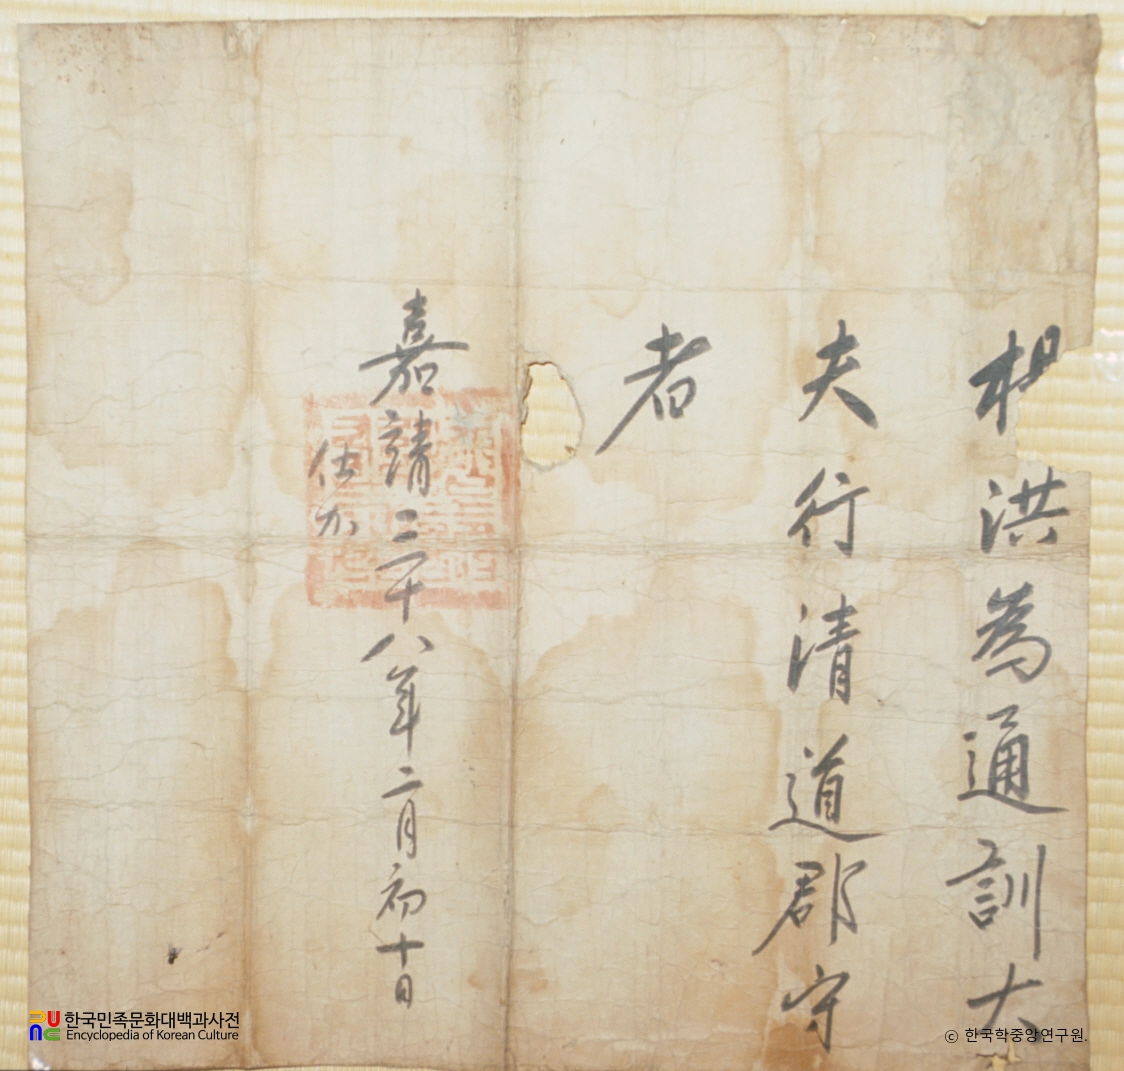 洪為通訓大
夫行清道郡守
者
嘉靖三十八年二月初十日
仕加
한국민족문화대백과사전
Encyclopedia of Korean Culture
© 한국학중앙연구원.